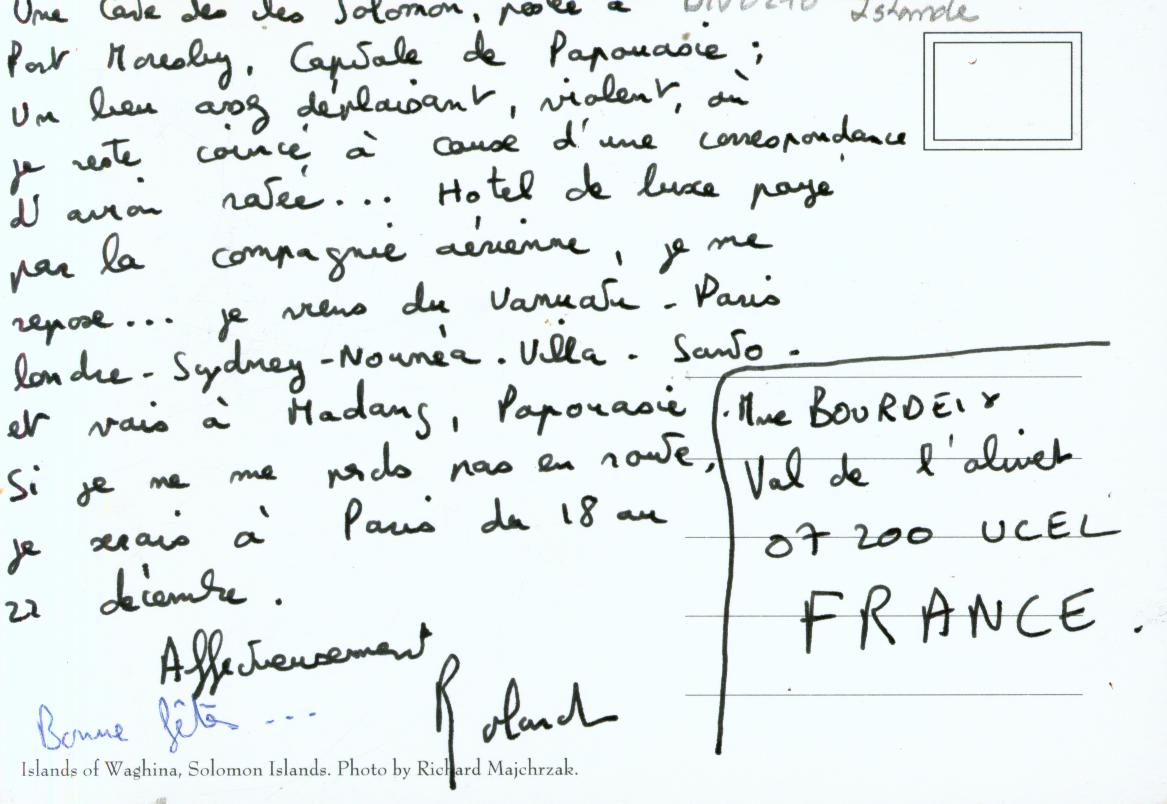 Une Carte des îles Solomon, postée à
Islande
Port Moresby, Capitale de Papouasie ;
Un lieu assez déplaisant, violent, où
je reste coincé à cause d'une correspondance
d'avion ratée... Hotel de luxe payé
par la compagnie aérienne, je me
repose... je viens du Vanuatu - Paris
londre - Sydney - Nouméa - Villa - Santo -
et vais à Madang, Papouasie
Si je ne me perds pas en route,
je serais à Paris du 18 au
22 décembre.
Affectueusement
Roland
Bonne fêtes ...
Mme BOURDEIX
Val de l'olivet
07 200 UCEL
FRANCE.
Islands of Waghina, Solomon Islands. Photo by Richard Majchrzak.